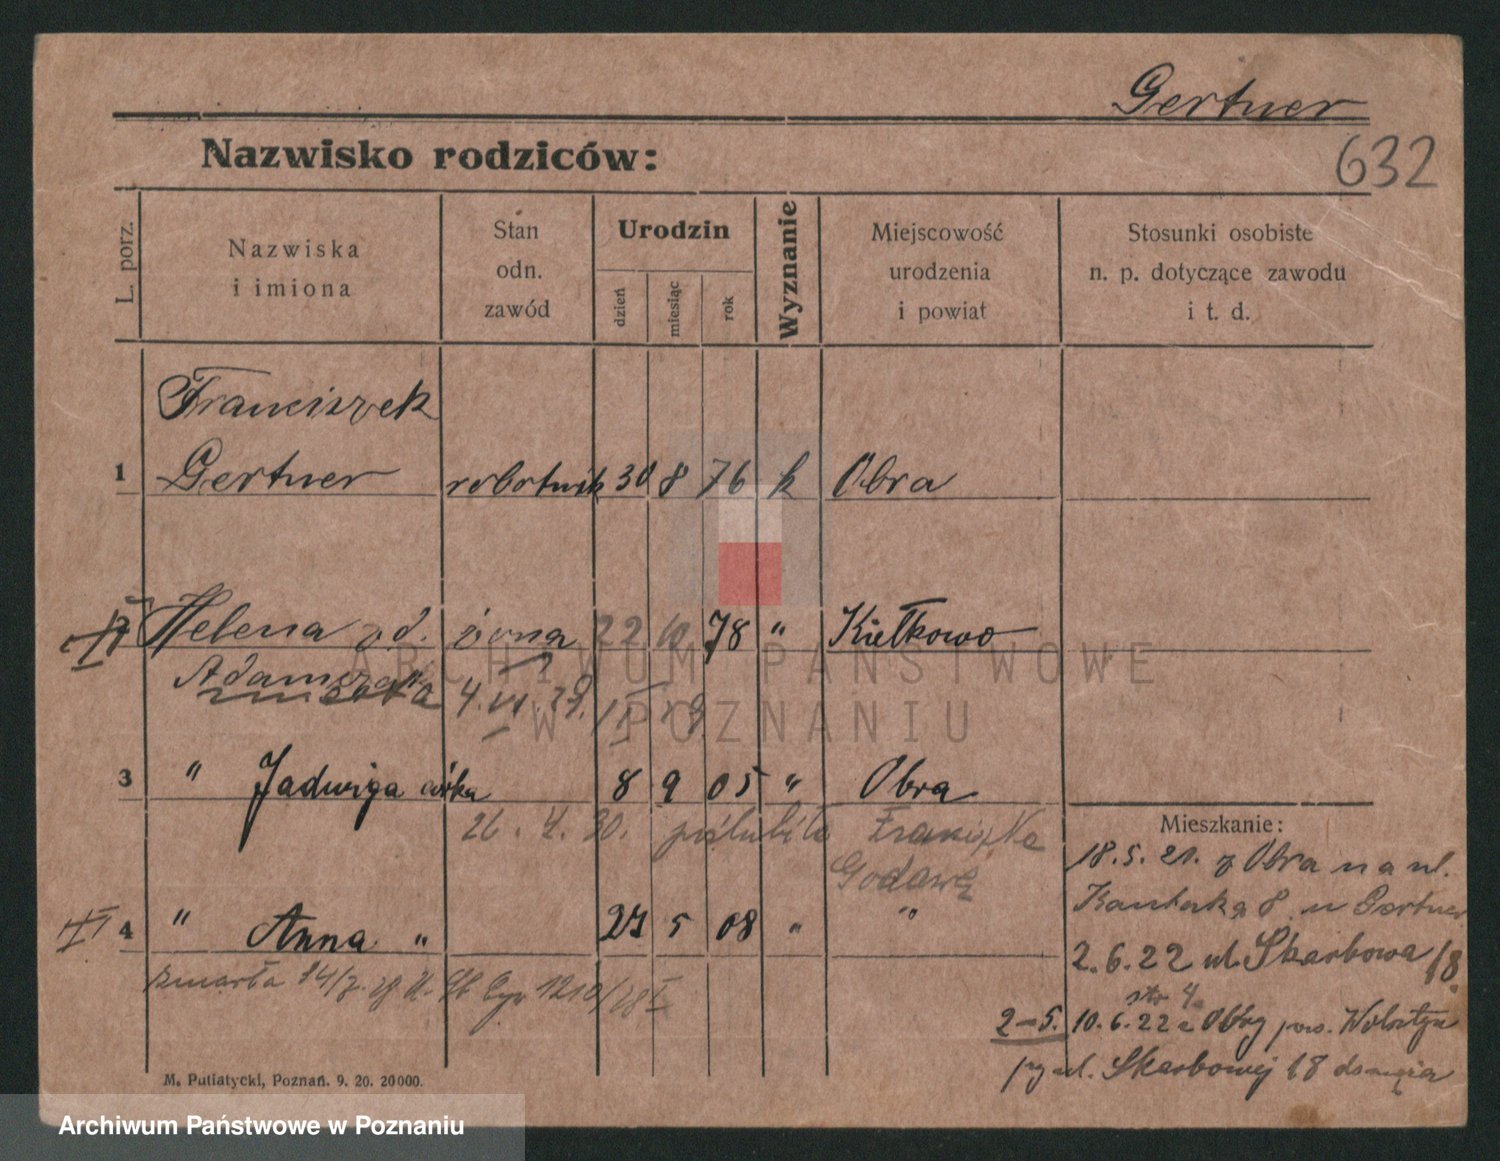 Gertner
632
Nazwisko rodziców:
L. porz.
Nazwiska
i imiona
Stan
odn.
zawód
Urodzin
dzień
miesiąc
rok
Wyznanie
Miejscowość
urodzenia
i powiat
Stosunki osobiste
n. p. dotyczące zawodu
i t. d.
Franciszek
1 Gertner robotnik 30 8 76 k Obra
Helena zd. żona 22 10 78 " Kiełkowo
4. VI. 28.
ARCHIWUM PAŃSTWOWE
W POZNANIU
3 " Jadwiga córka 8 9 05 " Obra
26. 4. 30. poślubiła Franciszka
4 " Anna " 27 5 08 " "
zmarła 14/7.
Mieszkanie:
18. 5. 21. z Obra na ul.
8 u Gertner
2. 6. 22 ul. Skarbowa 18.
str 4.
2–5. 10. 6. 22 z Obry pow. Wolsztyn
przy ul. Skarbowej 18 do męża
M. Putiatycki, Poznań. 9. 20. 20000.
Archiwum Państwowe w Poznaniu